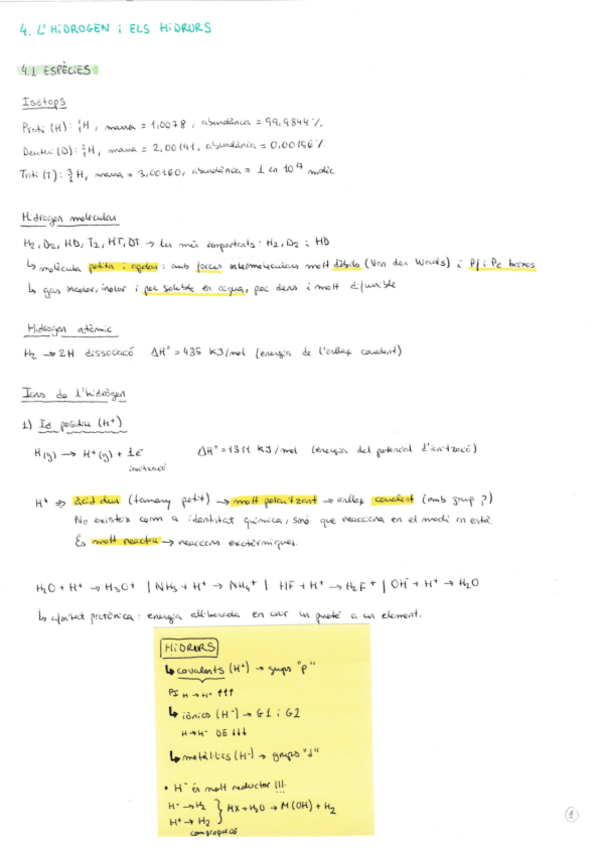 4. L'HIDROGEN I ELS HIDRURS
4.1 ESPÈCIES
Isòtops
Proti (H): ¹₁H, massa = 1,0078, abundància = 99,9844 %.
Deuteri (D): ²₁H, massa = 2,00141, abundància = 0,00156 %.
Triti (T): ³₁H, massa = 3,00160, abundància = 1 en 10¹⁷ molèc.
Hidrogen molecular
H₂, D₂, HD, T₂, HT, DT → Les més importants: H₂, D₂ i HD
↳ molècula petita i apolar: amb forces intermoleculars molt dèbils (Van der Waals) i Pf i Pe baixos
↳ gas incolor, inolor i poc soluble en aigua, poc dens i molt difusible
Hidrogen atòmic
H₂ → 2H dissociació ΔHº = 435 KJ/mol (energia de l'enllaç covalent)
Ions de l'hidrògen
1) Ió positiu (H⁺)
H(g) → H⁺(g) + 1e⁻ ΔHº = 1311 KJ/mol (energia del potencial d'ionització)
ionització
H⁺ ⇒ àcid dur (tamany petit) → molt polaritzant → enllaç covalent (amb grup ?)
No existeix com a identitat química, sinó que reacciona en el medi on està.
És molt reactiu → reaccions exotèrmiques.
H₂O + H⁺ → H₃O⁺ | NH₃ + H⁺ → NH₄⁺ | HF + H⁺ → H₂F⁺ | OH⁻ + H⁺ → H₂O
↳ afinitat protònica: energia alliberada en unir un protó a un element.
HIDRURS
↳ covalents (H⁺) → grups "p"
PI H → H⁺ ↑↑↑
↳ iònics (H⁻) → G1 i G2
H → H⁻ DE ↓↓↓
↳ metàl·lics (H⁻) → grups "d"
• H⁻ és molt reductor !!!
H⁻ → H₂ } MX + H₂O → M(OH) + H₂
H⁺ → H₂
comproporció
1